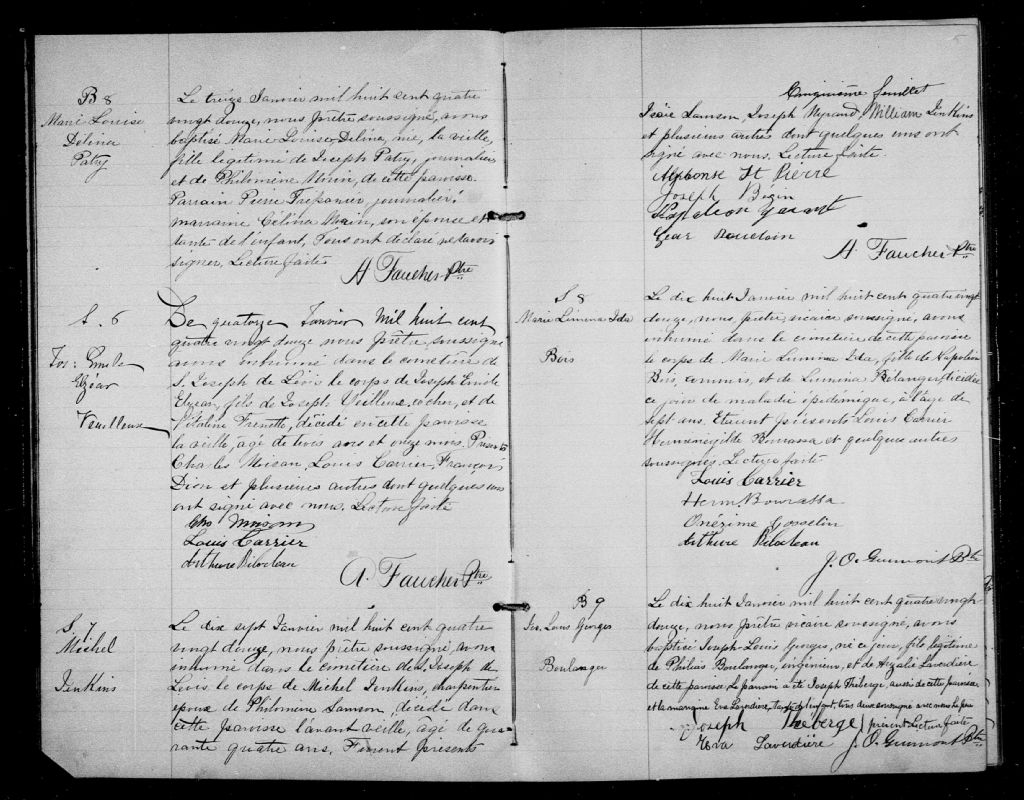 B 8
Marie Louise
Délina
Patry
Le treize Janvier mil huit cent quatre
vingt douze, nous prêtre soussigné, avons
baptisé Marie Louise Délina, née, la veille,
fille légitime de Joseph Patry, journalier
et de Philomène Morin, de cette paroisse.
Parrain Pierre Trépanier journalier;
marraine Célina Morin, son épouse et
tante de l'enfant, Tous ont déclaré ne savoir
signer. Lecture faite
A Faucher Ptre
S. 6
Jos: Emile
Elzéar
Veuilleux
Le quatorze Janvier Mil huit cent
quatre vingt douze nous prêtre soussigné
avons inhumé dans le cimetière de
S. Joseph de Lévis le corps de Joseph Emile
Elzéar, fils de Joseph Veilleux, cocher, et de
Vitaline Frenette, décédé en cette paroisse
la veille, âgé de trois ans et onze mois. Présents
Charles Moisan, Louis Carrier, François
Dion et plusieurs autres dont quelques uns
ont signé avec nous. Lecture faite
Chs Moisan
Louis Carrier
Arthur Bilodeau
A. Faucher Ptre
S. 7
Michel
Jenkins
Le dix sept Janvier mil huit cent quatre
vingt douze, nous prêtre soussigné, avons
inhumé dans le cimetière de S. Joseph de
Lévis le corps de Michel Jenkins, charpentier
époux de Philomène Samson, décédé dans
cette paroisse l'avant veille, âgé de qua
rante quatre ans. Furent présents
Cinquième feuillet
Isaïe Samson, Joseph Myrand, William Jenkins
et plusieurs autres dont quelques uns ont
signé avec nous. Lecture faite.
Alphonse St Pierre
Joseph Bégin
Napoleon
A. Faucher Ptre
S 8
Marie Limina Ida
Bois
Le dix huit Janvier mil huit cent quatre vingt
douze, nous, prêtre vicaire soussigné, avons
inhumé dans le cimetière de cette paroisse
le corps de Marie Lumina Ida, fille de Napoléon
Bois, commis, et de Lumina Bélanger, décédée
ce jour de maladie épidémique, à l'âge de
sept ans. Etaient présents Louis Carrier
Herménégilde Bourassa et quelques autres
soussignés. Lecture faite
Louis Carrier
Herm. Bourassa
Onezime Gosselin
Arthur Bilodeau
J. O. Guimont Ptre
B 9
Jos. Louis Georges
Boulanger
Le dix huit Janvier mil huit cent quatre vingt
douze, nous prêtre vicaire soussigné, avons
baptisé Joseph Louis Georges, né ce jour, fils légitime
de Philias Boulanger, ingénieur, et de Arzalie Laverdière
de cette paroisse. Le parrain a été Joseph Théberge, aussi de cette paroisse
et la marraine Eva Laverdière, Tante de l'enfant, tous deux ont signé avec nous. Le père
présent. Lecture faite
Joseph Theberge
Eva Laverdière J. O. Guimont Ptre